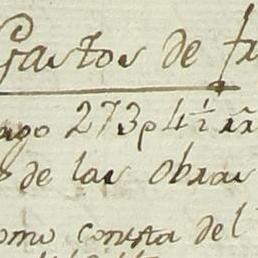 Gastos de fr
ago 273p 4½ rr
de las obras
omo consta del